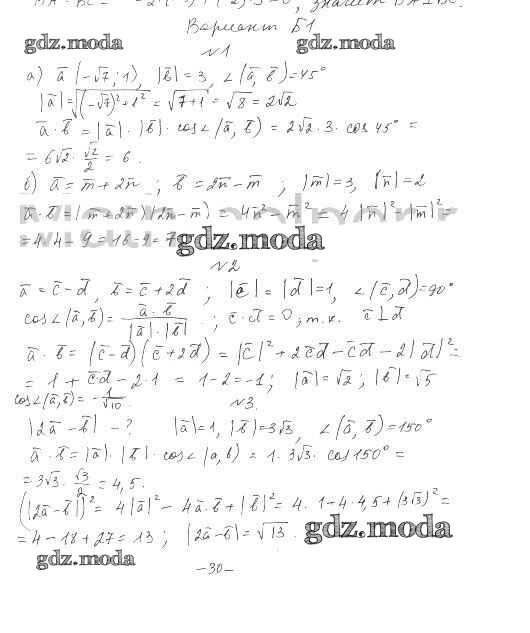 значит
Вариант Б1
gdz.moda gdz.moda
№1
а) a̅ (−√7; 1), |b̅| = 3, ∠(a̅, b̅) = 45°
|a̅| = √((−√7)² + 1²) = √(7+1) = √8 = 2√2
a̅ · b̅ = |a̅| · |b̅| · cos∠(a̅, b̅) = 2√2 · 3 · cos 45° =
= 6√2 · √2/2 = 6.
б) a̅ = m̅ + 2n̅ ; b̅ = 2n̅ − m̅ ; |m̅| = 3, |n̅| = 2
a̅ · b̅ = (m̅ + 2n̅)(2n̅ − m̅) = 4n̅² − m̅² = 4|n̅|² − |m̅|² =
= 4·4 − 9 = 16 − 9 = 7
gdz.moda
№2
a̅ = c̅ − d̅, b̅ = c̅ + 2d̅ ; |c̅| = |d̅| = 1, ∠(c̅, d̅) = 90°
cos∠(a̅, b̅) = a̅ · b̅ / |a̅| · |b̅| ; c̅ · d̅ = 0; т.к. c̅ ⊥ d̅
a̅ · b̅ = (c̅ − d̅)(c̅ + 2d̅) = |c̅|² + 2c̅d̅ − c̅d̅ − 2|d̅|² =
= 1 + c̅d̅ − 2·1 = 1 − 2 = −1; |a̅| = √2 ; |b̅| = √5
cos∠(a̅, b̅) = −1/√10
№3.
|2a̅ − b̅| − ? |a̅| = 1, |b̅| = 3√3, ∠(a̅, b̅) = 150°
a̅ · b̅ = |a̅| · |b̅| · cos∠(a, b) = 1 · 3√3 · cos 150° =
= 3√3 · √3/2 = 4,5.
(|2a̅ − b̅|)² = 4|a̅|² − 4a̅·b̅ + |b̅|² = 4·1 − 4·4,5 + (3√3)² =
= 4 − 18 + 27 = 13 ; |2a̅ − b̅| = √13.
gdz.moda
gdz.moda
−30−